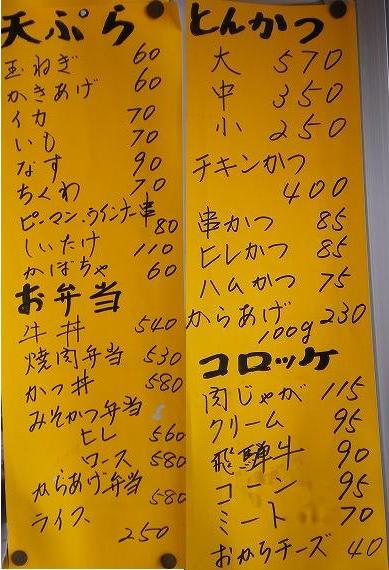 天ぷら
玉ねぎ 60
かきあげ 60
イカ 70
いも 70
なす 90
ちくわ 70
ピーマン、ウインナー串 80
しいたけ 110
かぼちゃ 60
お弁当
牛丼 540
焼肉弁当 530
かつ丼 580
みそかつ弁当
ヒレ 560
ロース 580
からあげ弁当 580
ライス 250
とんかつ
大 570
中 350
小 250
チキンかつ
400
串かつ 85
ヒレかつ 85
ハムかつ 75
からあげ 100g 230
コロッケ
肉じゃが 115
クリーム 95
飛騨牛 90
コーン 95
ミート 70
おからチーズ 40